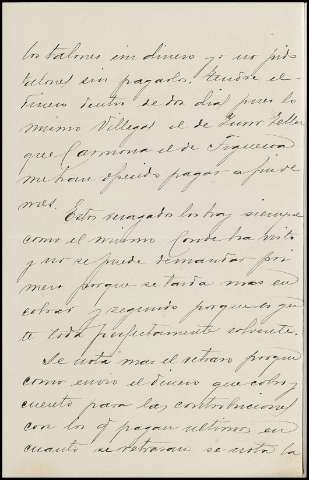 los talones sin dinero yo no pido
talones sin pagarlos. Tendre el
dinero dentro de dos dias pues lo
mismo Villegas el de
que Carmona el de Figueroa
me han ofrecido pagar a fin de
mes.
Estos rezagados los hay siempre
como el mismo Conde ha visto
y no se puede demandar pri
mero porque se tarda mas en
cobrar y segundo porque es gen
te toda perfectamente solvente.
Se nota mas el retraso porque
como envio el dinero que cobro y
cuento para las contribuciones
con los q pagan ultimos en
cuanto se retrasan se nota la